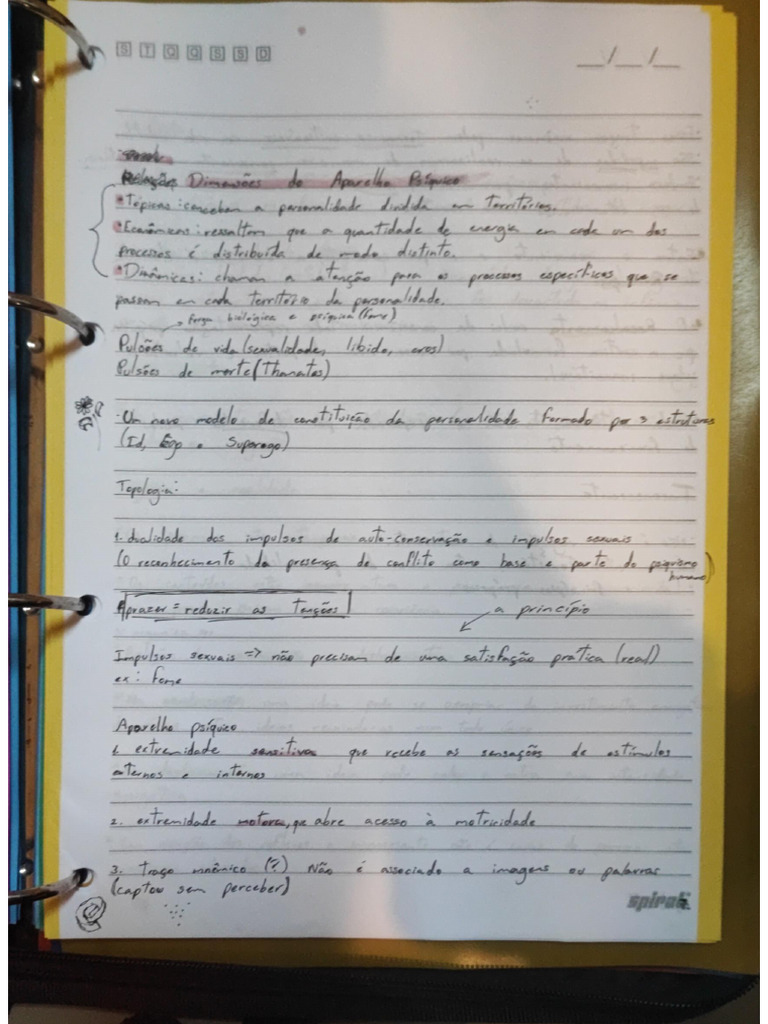 S T Q Q S S D
__/__/__
Relação: Dimensões do Aparelho Psíquico
• Tópicas: concebem a personalidade dividida em territórios.
• Econômicas: ressaltam que a quantidade de energia em cada um dos
processos é distribuída de modo distinto.
• Dinâmicas: chamam a atenção para os processos específicos que se
passam em cada território da personalidade.
→ força biológica e psíquica (fome)
Pulsões de vida (sexualidade, libido, eros)
Pulsões de morte (Thanatos)
· Um novo modelo de constituição da personalidade formado por 3 estruturas
(Id, Ego e Superego)
Topologia:
1. dualidade dos impulsos de auto-conservação e impulsos sexuais
(O reconhecimento da presença de conflito como base e parte do psiquismo
humano)
prazer = reduzir as tensões
a princípio
Impulsos sexuais => não precisam de uma satisfação prática (real)
ex: fome
Aparelho psíquico
1. extremidade sensitiva que recebe as sensações de estímulos
externos e internos
2. extremidade motora, que abre acesso à motricidade
3. Traço mnêmico (?) Não é associado a imagens ou palavras
(captou sem perceber)
spiral